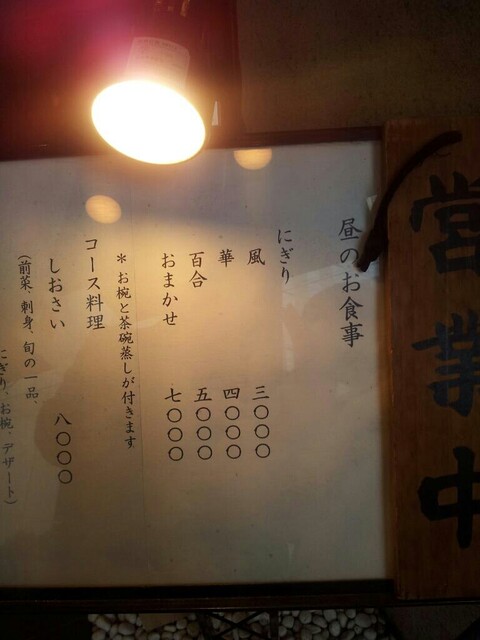 営業中
昼のお食事
にぎり
風 三〇〇〇
華 四〇〇〇
百合 五〇〇〇
おまかせ 七〇〇〇
＊お椀と茶碗蒸しが付きます
コース料理
しおさい 八〇〇〇
(前菜、刺身、旬の一品、
にぎり、お椀、デザート)